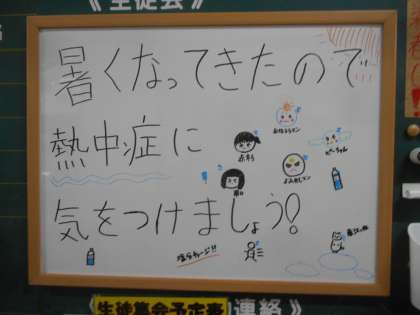 《生徒会》
暑くなってきたので
熱中症に
気をつけましょう!
塩分チャージ!!
生徒集会予定表
連絡》